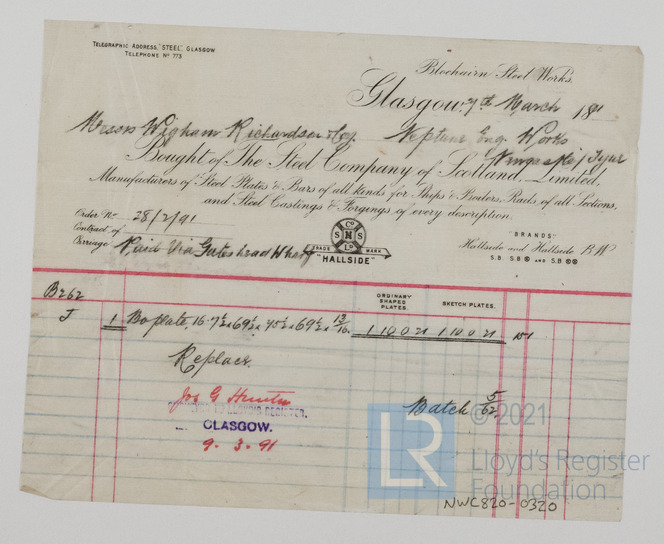 TELEGRAPHIC ADDRESS, "STEEL", GLASGOW
TELEPHONE No 773
Blochairn Steel Works.
Glasgow, 7th March 1891
Messrs Wigham Richardson & Co. Neptune Eng. Works
Bought of The Steel Company of Scotland, Limited,
Manufacturers of Steel Plates & Bars of all kinds for Ships & Boilers, Rails of all Sections,
and Steel Castings & Forgings of every description.
Order No 28/2/91
Contract of
Carriage Paid Via Gateshead Wharf
Co
S S M S
Ld
TRADE MARK
"HALLSIDE"
"BRANDS"
Hallside and Hallside B.W
S.B. S.B AND S.B
B262
ORDINARY SHAPED PLATES.
SKETCH PLATES.
J 1 Bo plate 16·7½ x 69½ x 45½ x 69½ x 13/16. 1 10 0 21 1 10 0 21
Replacr.
Jas G Hunter
SURVEYOR TO LLOYD'S REGISTER,
GLASGOW.
9. 3. 91
Batch 5/62
© 2021
LR
Lloyd's Register
Foundation
NWC820-0320